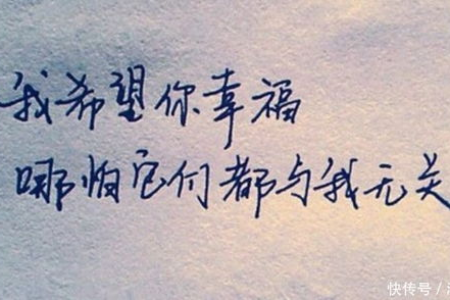 我希望你幸福
哪怕它们都与我无关
快传号／